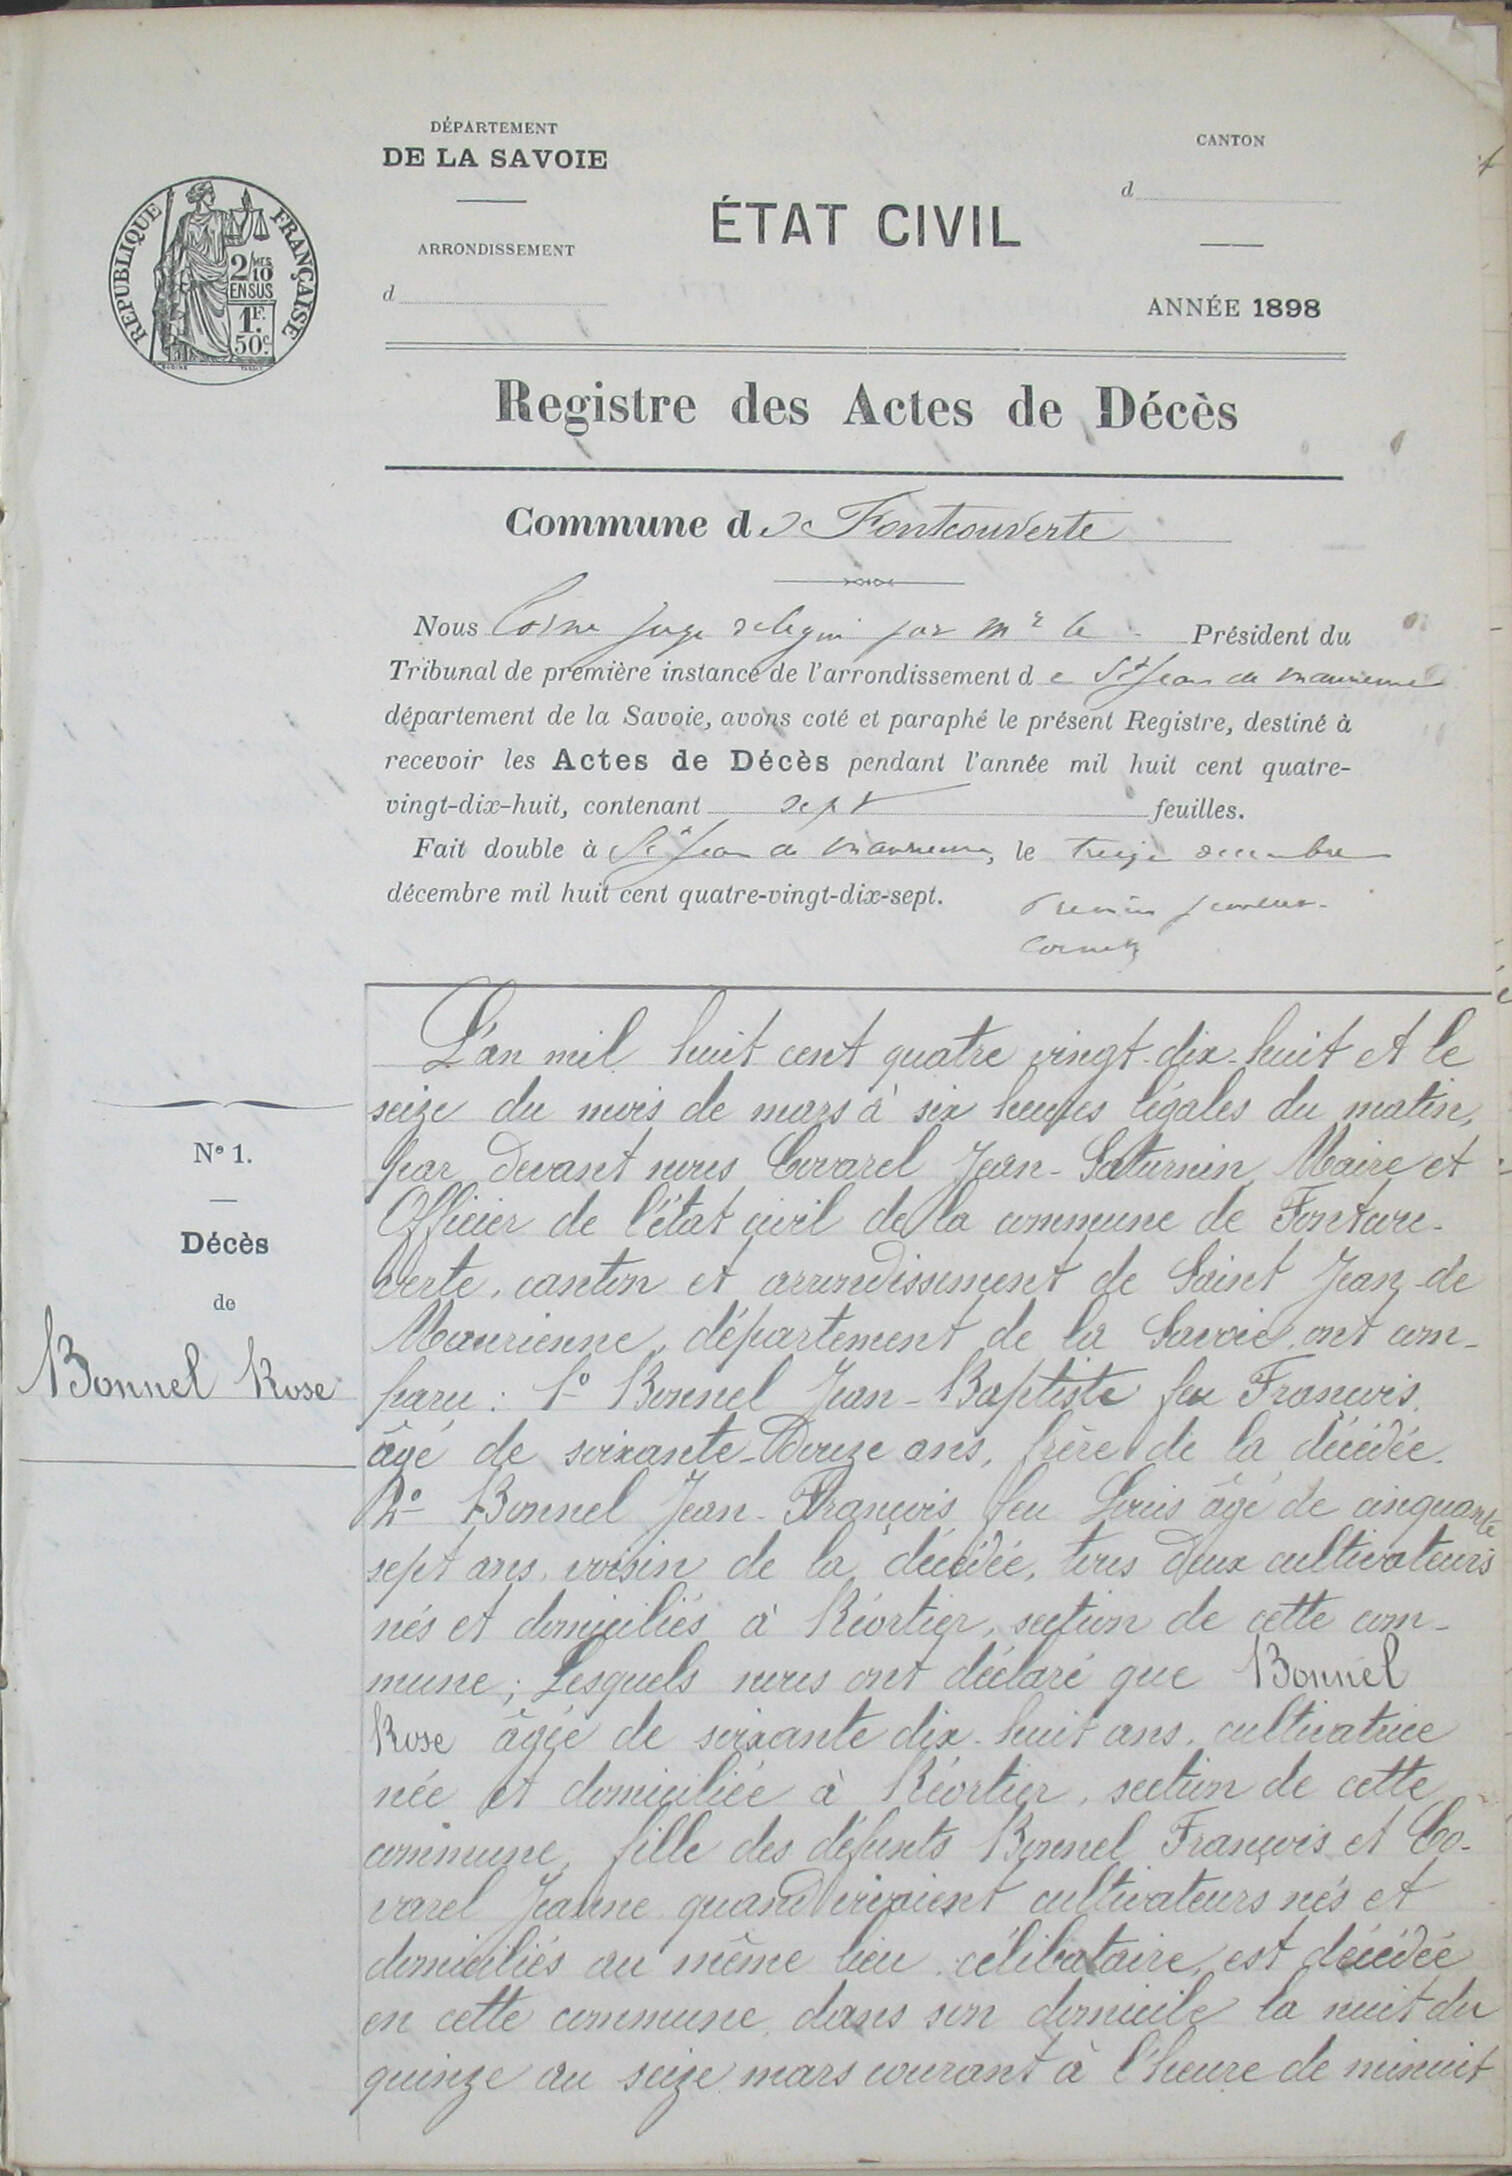 DÉPARTEMENT
DE LA SAVOIE
ARRONDISSEMENT
d
ÉTAT CIVIL
CANTON
d
ANNÉE 1898
RÉPUBLIQUE FRANÇAISE
2/MES 10
EN SUS
1F.
50c.
Registre des Actes de Décès
Commune de Fontcouverte
Nous juge délégué par Mr le Président du
Tribunal de première instance de l'arrondissement de St Jean de Maurienne
département de la Savoie, avons coté et paraphé le présent Registre, destiné à
recevoir les Actes de Décès pendant l'année mil huit cent quatre-
vingt-dix-huit, contenant sept feuilles.
Fait double à St Jean de Maurienne, le treize décembre
décembre mil huit cent quatre-vingt-dix-sept.
Premier
N° 1.
Décès
de
Bonnel Rose
L'an mil huit cent quatre vingt-dix-huit et le
seize du mois de mars à six heures légales du matin,
par devant nous Covarel Jean-Saturnin, Maire et
Officier de l'état civil de la commune de Fontcou-
verte, canton et arrondissement de Saint Jean-de
Maurienne, département de la Savoie, ont com-
paru : 1° Bonnel Jean-Baptiste feu François,
âgé de soixante-douze ans, frère de la décédée.
2° Bonnel Jean-François feu Louis âgé de cinquante
sept ans, voisin de la décédée, tous deux cultivateurs
nés et domiciliés à Riortier, section de cette com-
mune ; Lesquels nous ont déclaré que Bonnel
Rose âgée de soixante dix-huit ans, cultivatrice
née et domiciliée à Riortier, section de cette
commune, fille des défunts Bonnel François et Co-
varel Jeanne quand vivaient cultivateurs nés et
domiciliés au même lieu, célibataire, est décédée
en cette commune, dans son domicile la nuit du
quinze au seize mars courant à l'heure de minuit